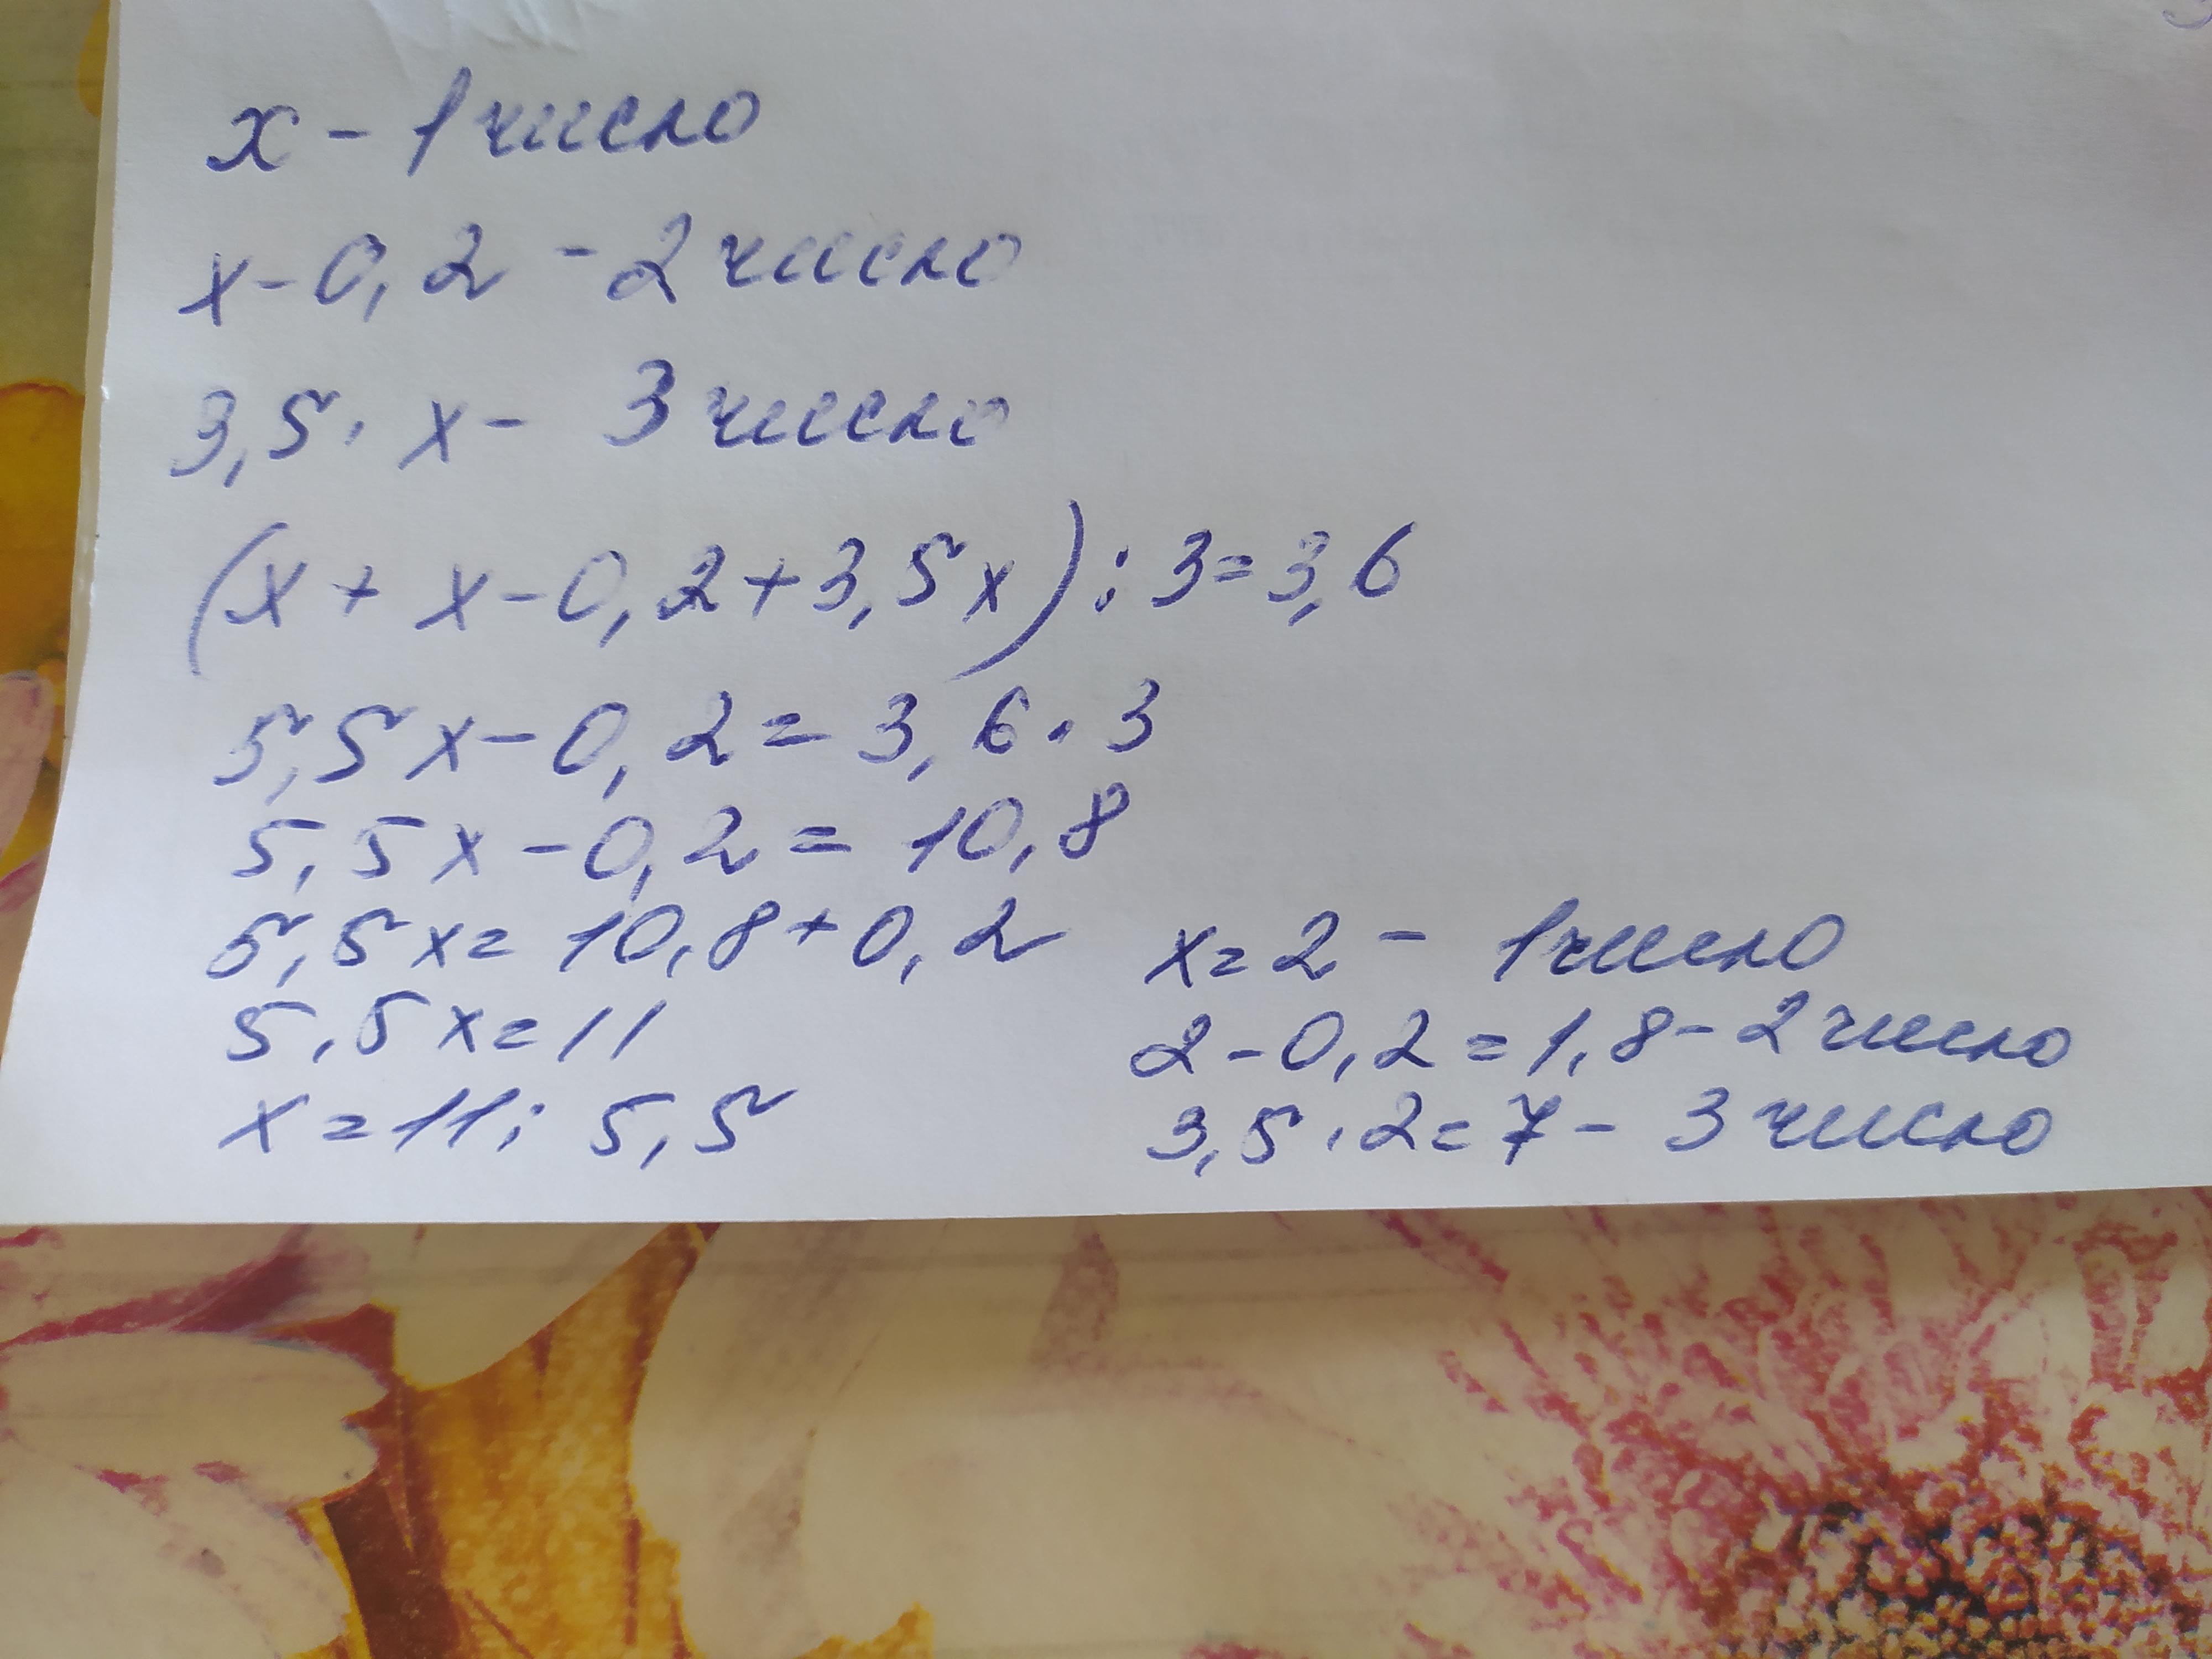 x - 1 число
x - 0,2 - 2 число
3,5 · x - 3 число
(x + x - 0,2 + 3,5x) : 3 = 3,6
5,5x - 0,2 = 3,6 · 3
5,5x - 0,2 = 10,8
5,5x = 10,8 + 0,2
5,5x = 11
x = 11 : 5,5
x = 2 - 1 число
2 - 0,2 = 1,8 - 2 число
3,5 · 2 = 7 - 3 число